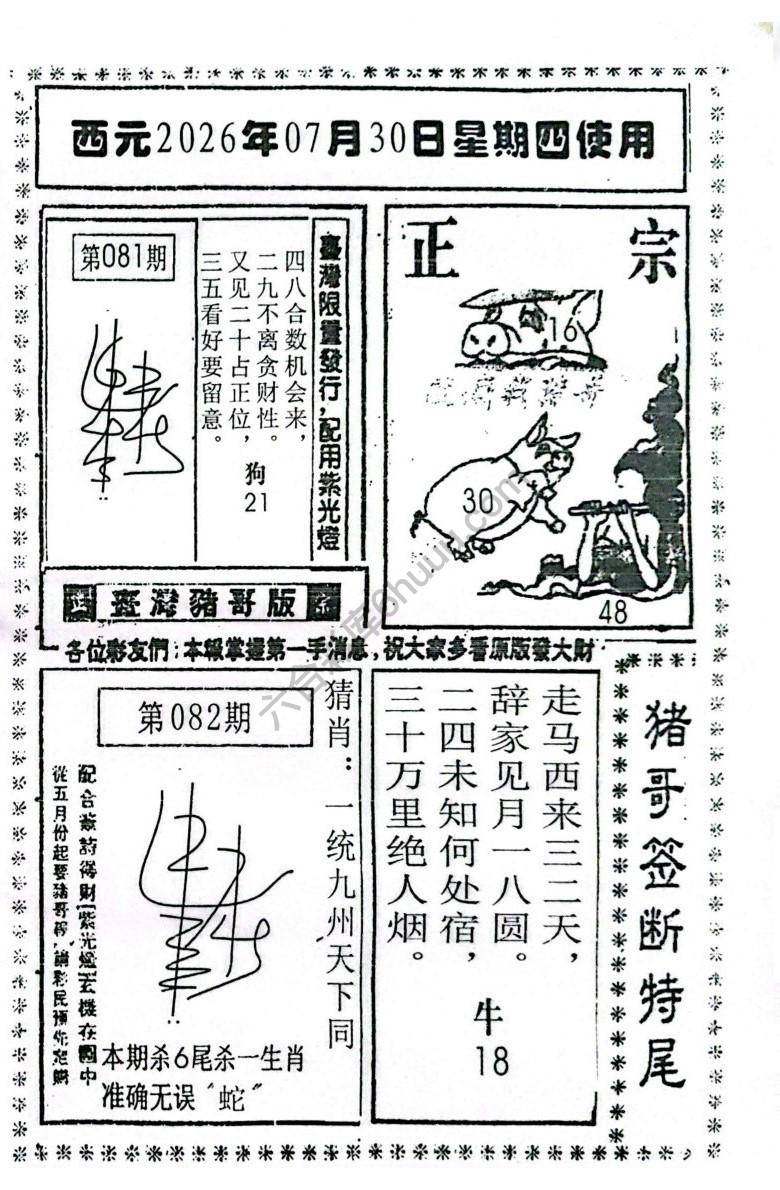 西元2026年07月30日星期四使用
臺灣限量發行,配用紫光燈
四八合数机会来，
二九不离贪财性。
又见二十占正位，
三五看好要留意。
狗
21
第081期
正宗
16
30
48
正臺灣豬哥版
各位彩友們:本報掌握第一手消息,祝大家多看原版發大財
猪哥签断特尾
走马西来三二天，
辞家见月一八圆。
二四未知何处宿，
三十万里绝人烟。
牛
18
猜肖：一统九州天下同
第082期
配合簽詩得財(紫光燈)玄機在圖中
從五月份起要豬哥報,請彩民預先定購
本期杀6尾杀一生肖
准确无误“蛇”
六合彩库6huuu.com